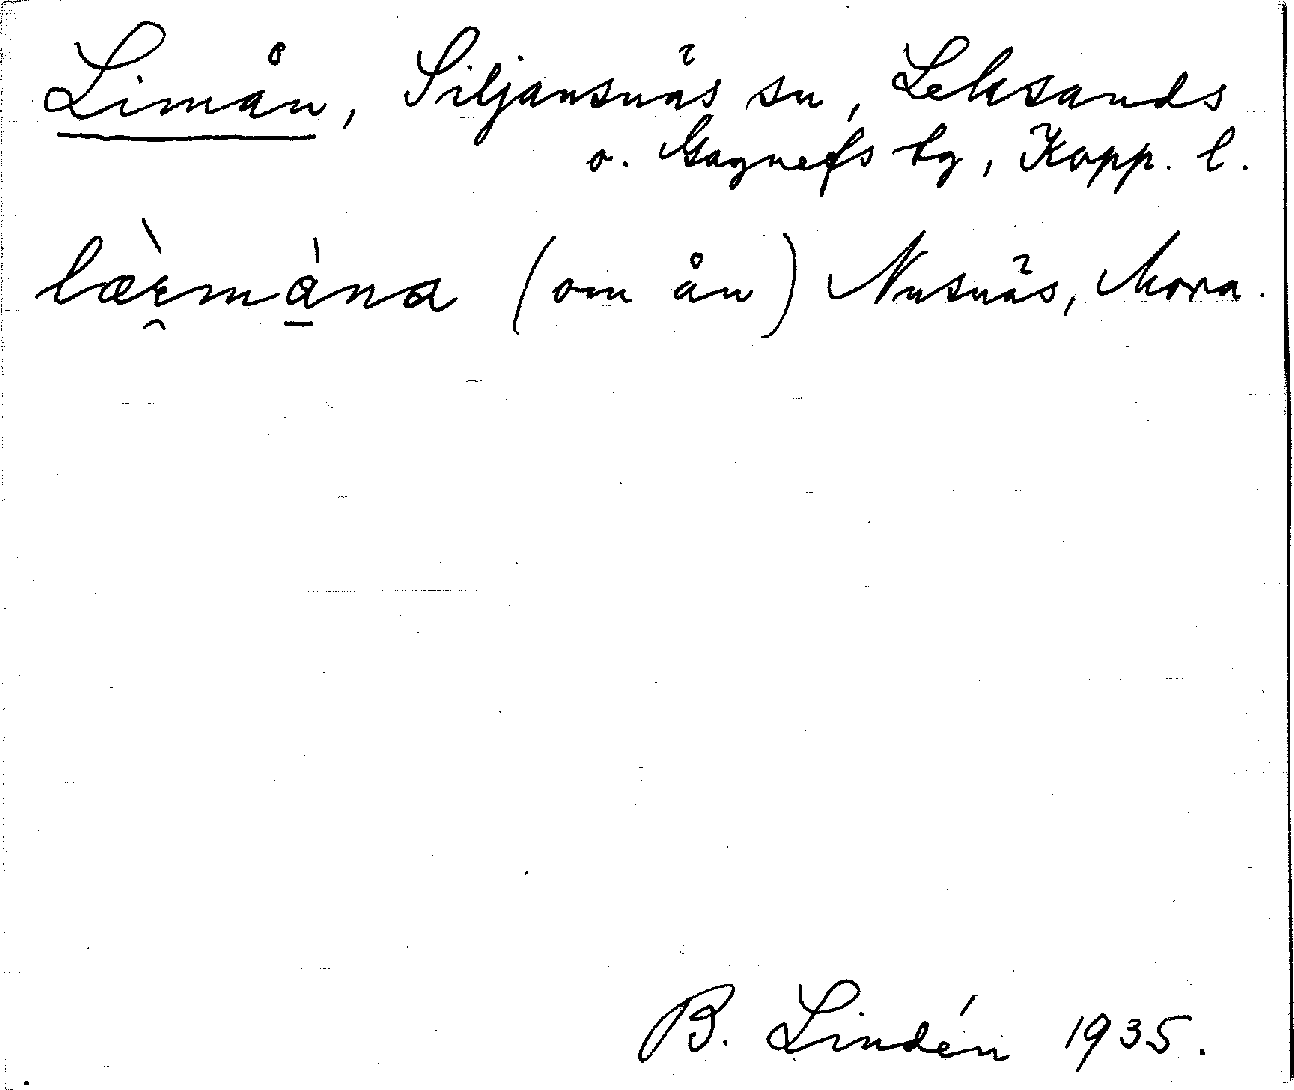 Limån, Siljansnäs sn, Leksands
o. Gagnefs tg, Kopp. l.
læ̀ɛ̯má̱na (om ån) Nusnäs, Mora.
B. Lindén 1935.